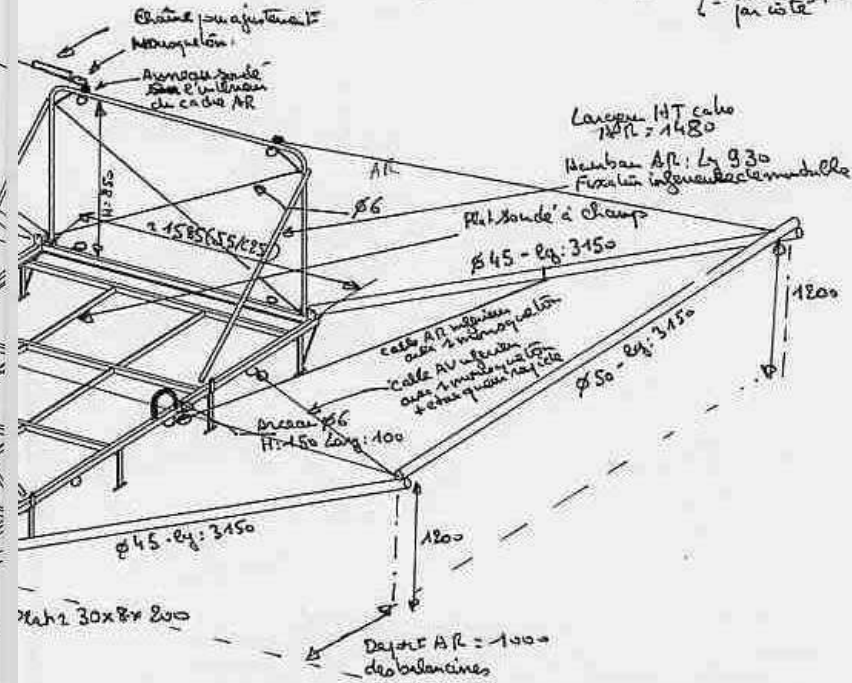 par côté
Chaîne pour ajustement
Mousqueton
Anneau soudé
sur l'intérieur
du cadre AR
Largeur HT cadre
AR = 1480
Hauban AR : Lg 930
Fixation inférieure démontable
AR
H=850
Ø6
≈1585
Plat soudé à champ
Ø45 - lg: 3150
1200
Cable AR inférieur
avec 1 mousqueton
Cable AV inférieur
avec 1 mousqueton
rapide
Ø50 - lg: 3150
Arceau Ø6
H:150 Larg: 100
Ø45 - lg: 3150
1200
30x8x200
Déport AR = 1000
des balancines